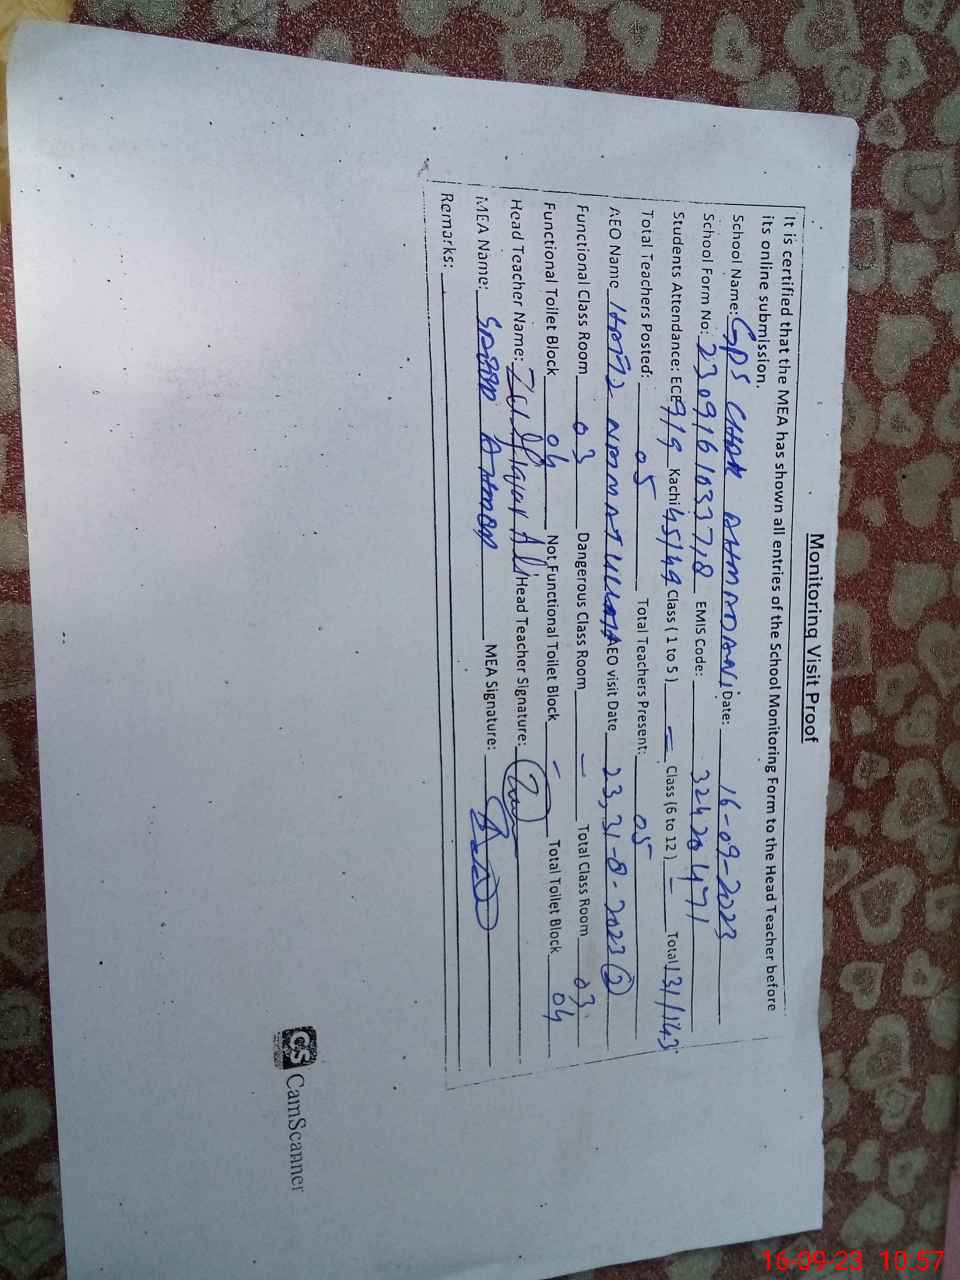 Monitoring Visit Proof
It is certified that the MEA has shown all entries of the School Monitoring Form to the Head Teacher before
its online submission.
School Name: GPS CHAK AHMADANI Date: 16-09-2023
School Form No: 230916103371 8 EMIS Code: 32420471
Students Attendance: ECE 9/9 Kachi 45/49 Class ( 1 to 5 ) — Class (6 to 12 ) — Total 131/143
Total Teachers Posted: 05 Total Teachers Present: 05
AEO Name AEO visit Date 23, 31-8-2023 2
Functional Class Room 03 Dangerous Class Room — Total Class Room 03
Functional Toilet Block 04 Not Functional Toilet Block — Total Toilet Block 04
Head Teacher Name: Zulfiqar Ali Head Teacher Signature:
MEA Name: SAEED AHMED MEA Signature:
Remarks:
CS CamScanner
16-09-23 10:57